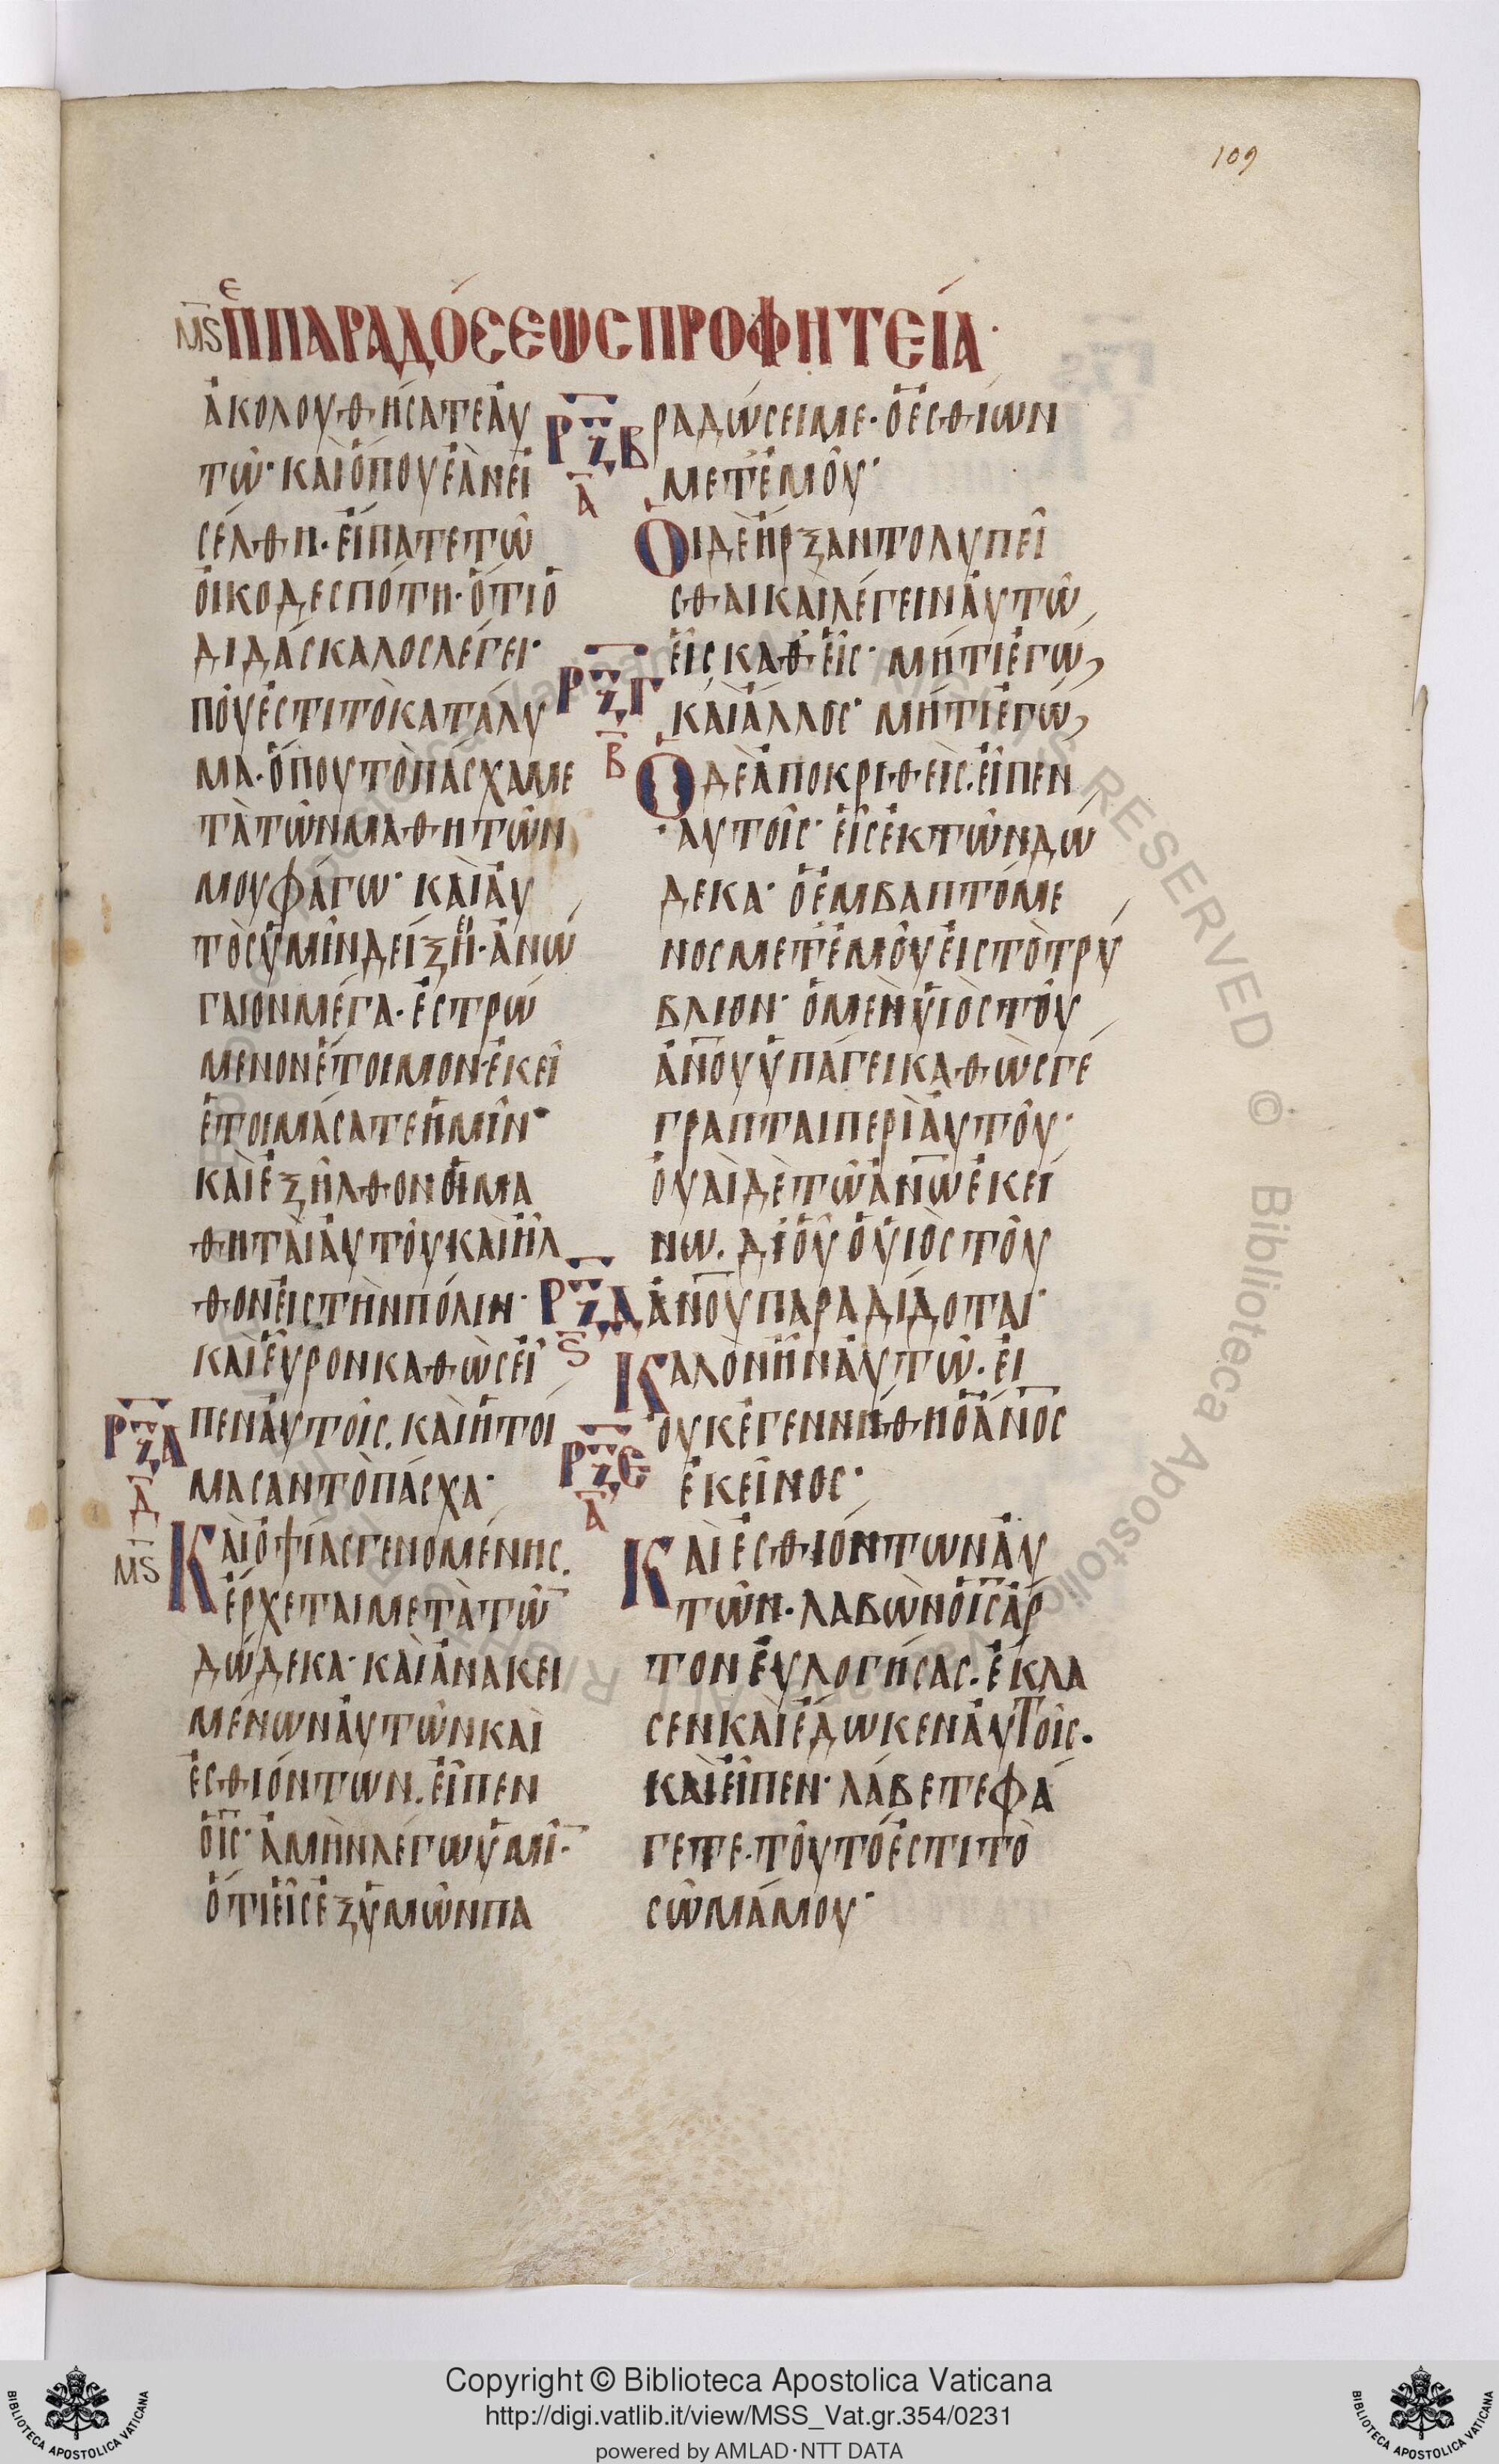 109
Μς Π̅ε ΠΑΡΑΔΌΣΕΩΣ ΠΡΟΦΗΤΕΊΑ·
ἀκολουθήσατε αὐ
τῶ· καὶ ὅπου ἐὰν εἰ
σέλθη. εἴπατε τῶ
οἰκοδεσπότη· ὅτι ὁ
διδάσκαλος λέγει·
ποῦ ἐστι τὸ κατάλυ
μα· ὅπου τὸ πάσχα με
τὰ τῶν μαθητῶν
μου φάγω· καὶ αὐ
τὸς ὑμῖν δείξη· ἀνώ
γαιον μέγα· ἐστρω
μένον ἕτοιμον· ἐκεῖ
ἑτοιμάσατε ἡμῖν·
καὶ ἐξῆλθον οἱ μα
θηταὶ αὐτοῦ καὶ ἦλ
θον εἰς τὴν πόλιν·
καὶ εὗρον καθὼς εἶ
ΡΞΑ
Δ
πεν αὐτοῖς. καὶ ἡτοί
μασαν τὸ πάσχα·
Μς
Καὶ ὀψίας γενομένης.
ἔρχεται μετὰ τῶ̅
δώδεκα· καὶ ἀνακει
μένων αὐτῶν καὶ
ἐσθιόντων. εἶπεν
ὁ ι̅ς̅· ἀμὴν λέγω ὑμῖ̅·
ὅτι εἷς ἐξ ὑμῶν πα
ΡΞΒ
Α
ραδώσει με· ὁ ἐσθίων
μετ' ἐμοῦ·
Οἱ δὲ ἤρξαντο λυπεῖ
σθαι καὶ λέγειν αὐτῶ,
εἷς καθ' εἷς· μήτι ἐγώ,
ΡΞΓ
Β
καὶ ἄλλος· μήτι ἐγώ,
Ὁ δὲ ἀποκριθεὶς. εἶπεν
αὐτοῖς· εἷς ἐκ τῶν δώ
δεκα· ὁ ἐμβαπτόμε
νος μετ' ἐμοῦ εἰς τὸ τρύ
βλιον· ὁ μὲν υἱὸς τοῦ
ἀ̅ν̅ο̅υ̅ ὑπάγει καθὼς γέ
γραπται περὶ αὐτοῦ·
οὐαὶ δὲ τῶ ἀ̅ν̅ω̅ ἐκεί
νω. δι' οὗ ὁ υἱὸς τοῦ
ΡΞΔ
ς
ἀ̅ν̅ο̅υ̅ παραδίδοται·
Καλὸν ἦν αὐτῶ. εἰ
οὐκ ἐγεννήθη ὁ ἄ̅ν̅ο̅ς̅
ΡΞΕ
Α
ἐκεῖνος·
Καὶ ἐσθιόντων αὐ
τῶν· λαβὼν ὁ ι̅ς̅ ἄρ
τον εὐλογήσας. ἔκλα
σεν καὶ ἔδωκεν αὐτοῖς·
καὶ εἶπεν· λάβετε φά
γετε· τοῦτό ἐστι τὸ
σῶμά μου·
Copyright © Biblioteca Apostolica Vaticana
http://digi.vatlib.it/view/MSS_Vat.gr.354/0231
powered by AMLAD·NTT DATA
BIBLIOTECA APOSTOLICA VATICANA
BIBLIOTECA APOSTOLICA VATICANA